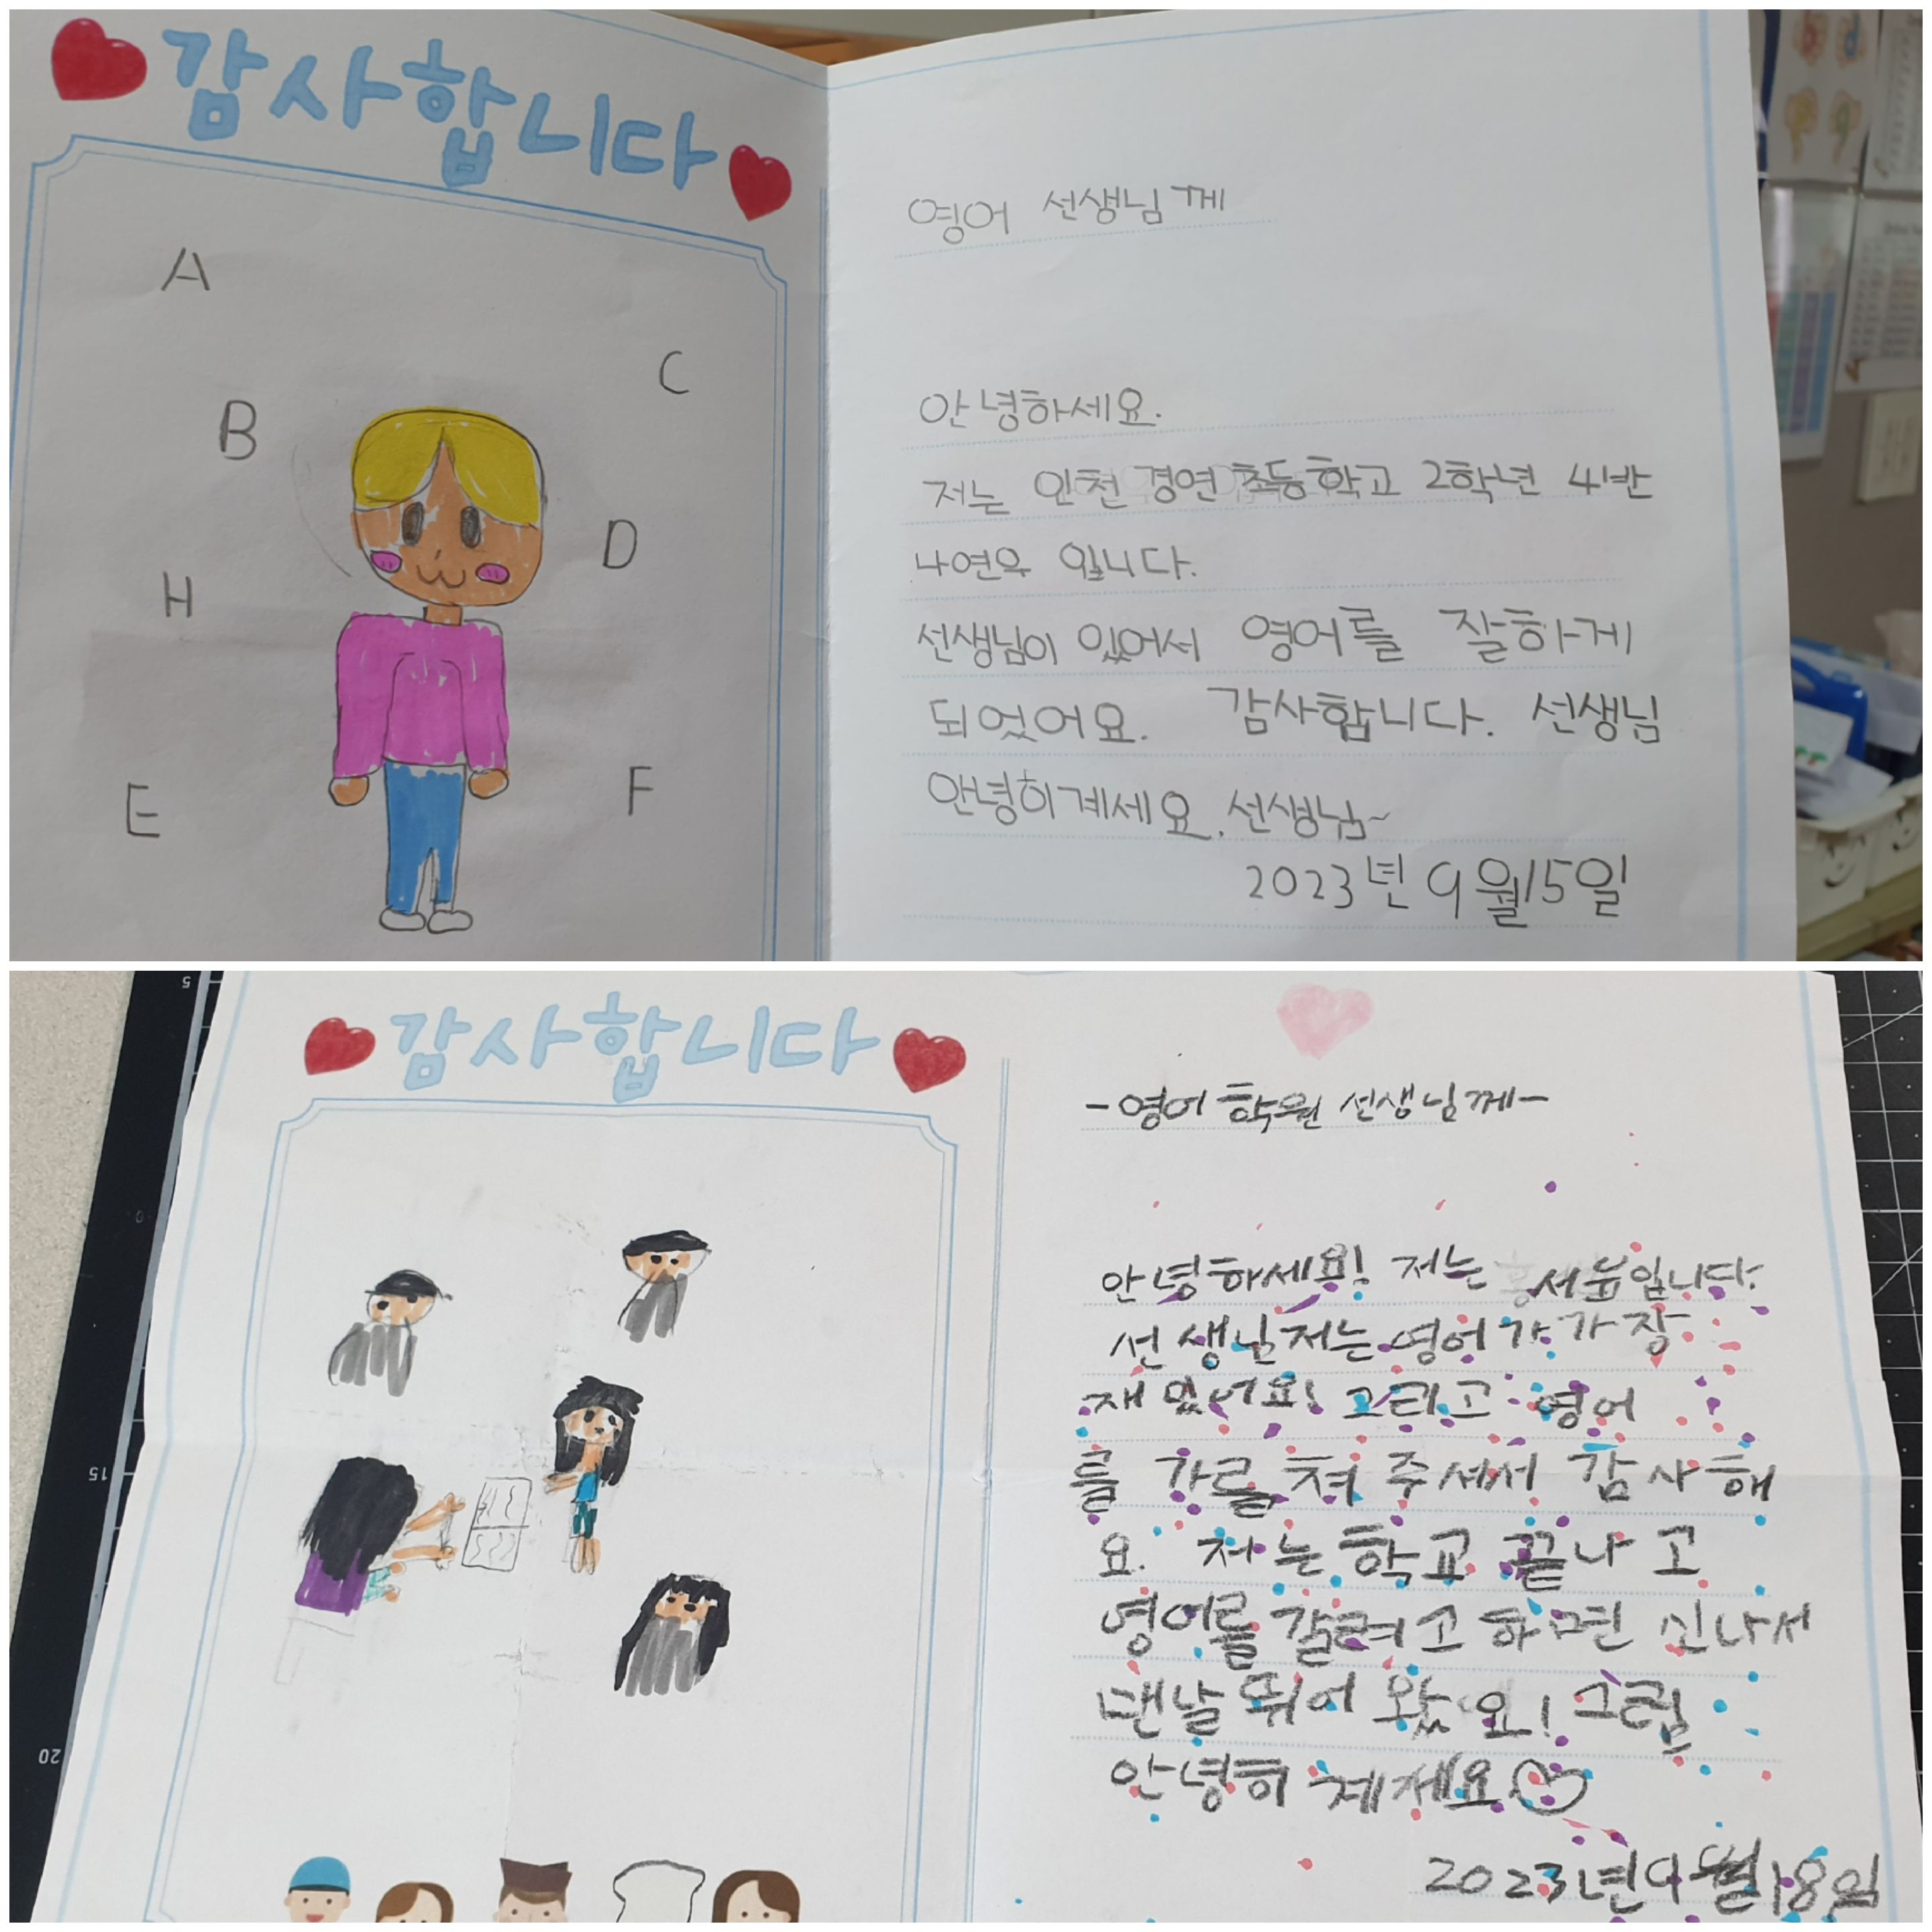 감사합니다
A
C
B
D
H
E
F
영어 선생님께
안녕하세요.
저는 인천 경연초등학교 2학년 4반
나연우 입니다.
선생님이 있어서 영어를 잘하게
되었어요. 감사합니다. 선생님
안녕히계세요. 선생님~
2023년 9월15일
감사합니다
-영어 학원 선생님께-
안녕하세요! 저는 입니다.
선생님저는 영어가 가장
재있어요! 그리고 영어
를 가르쳐 주셔서 감사해
요. 저는 학교 끝나고
영어를 갈려고 하면 신나서
맨날 뛰어 왔요! 그럼
안녕히 계세요
2023년9월18일
5
0
15
20